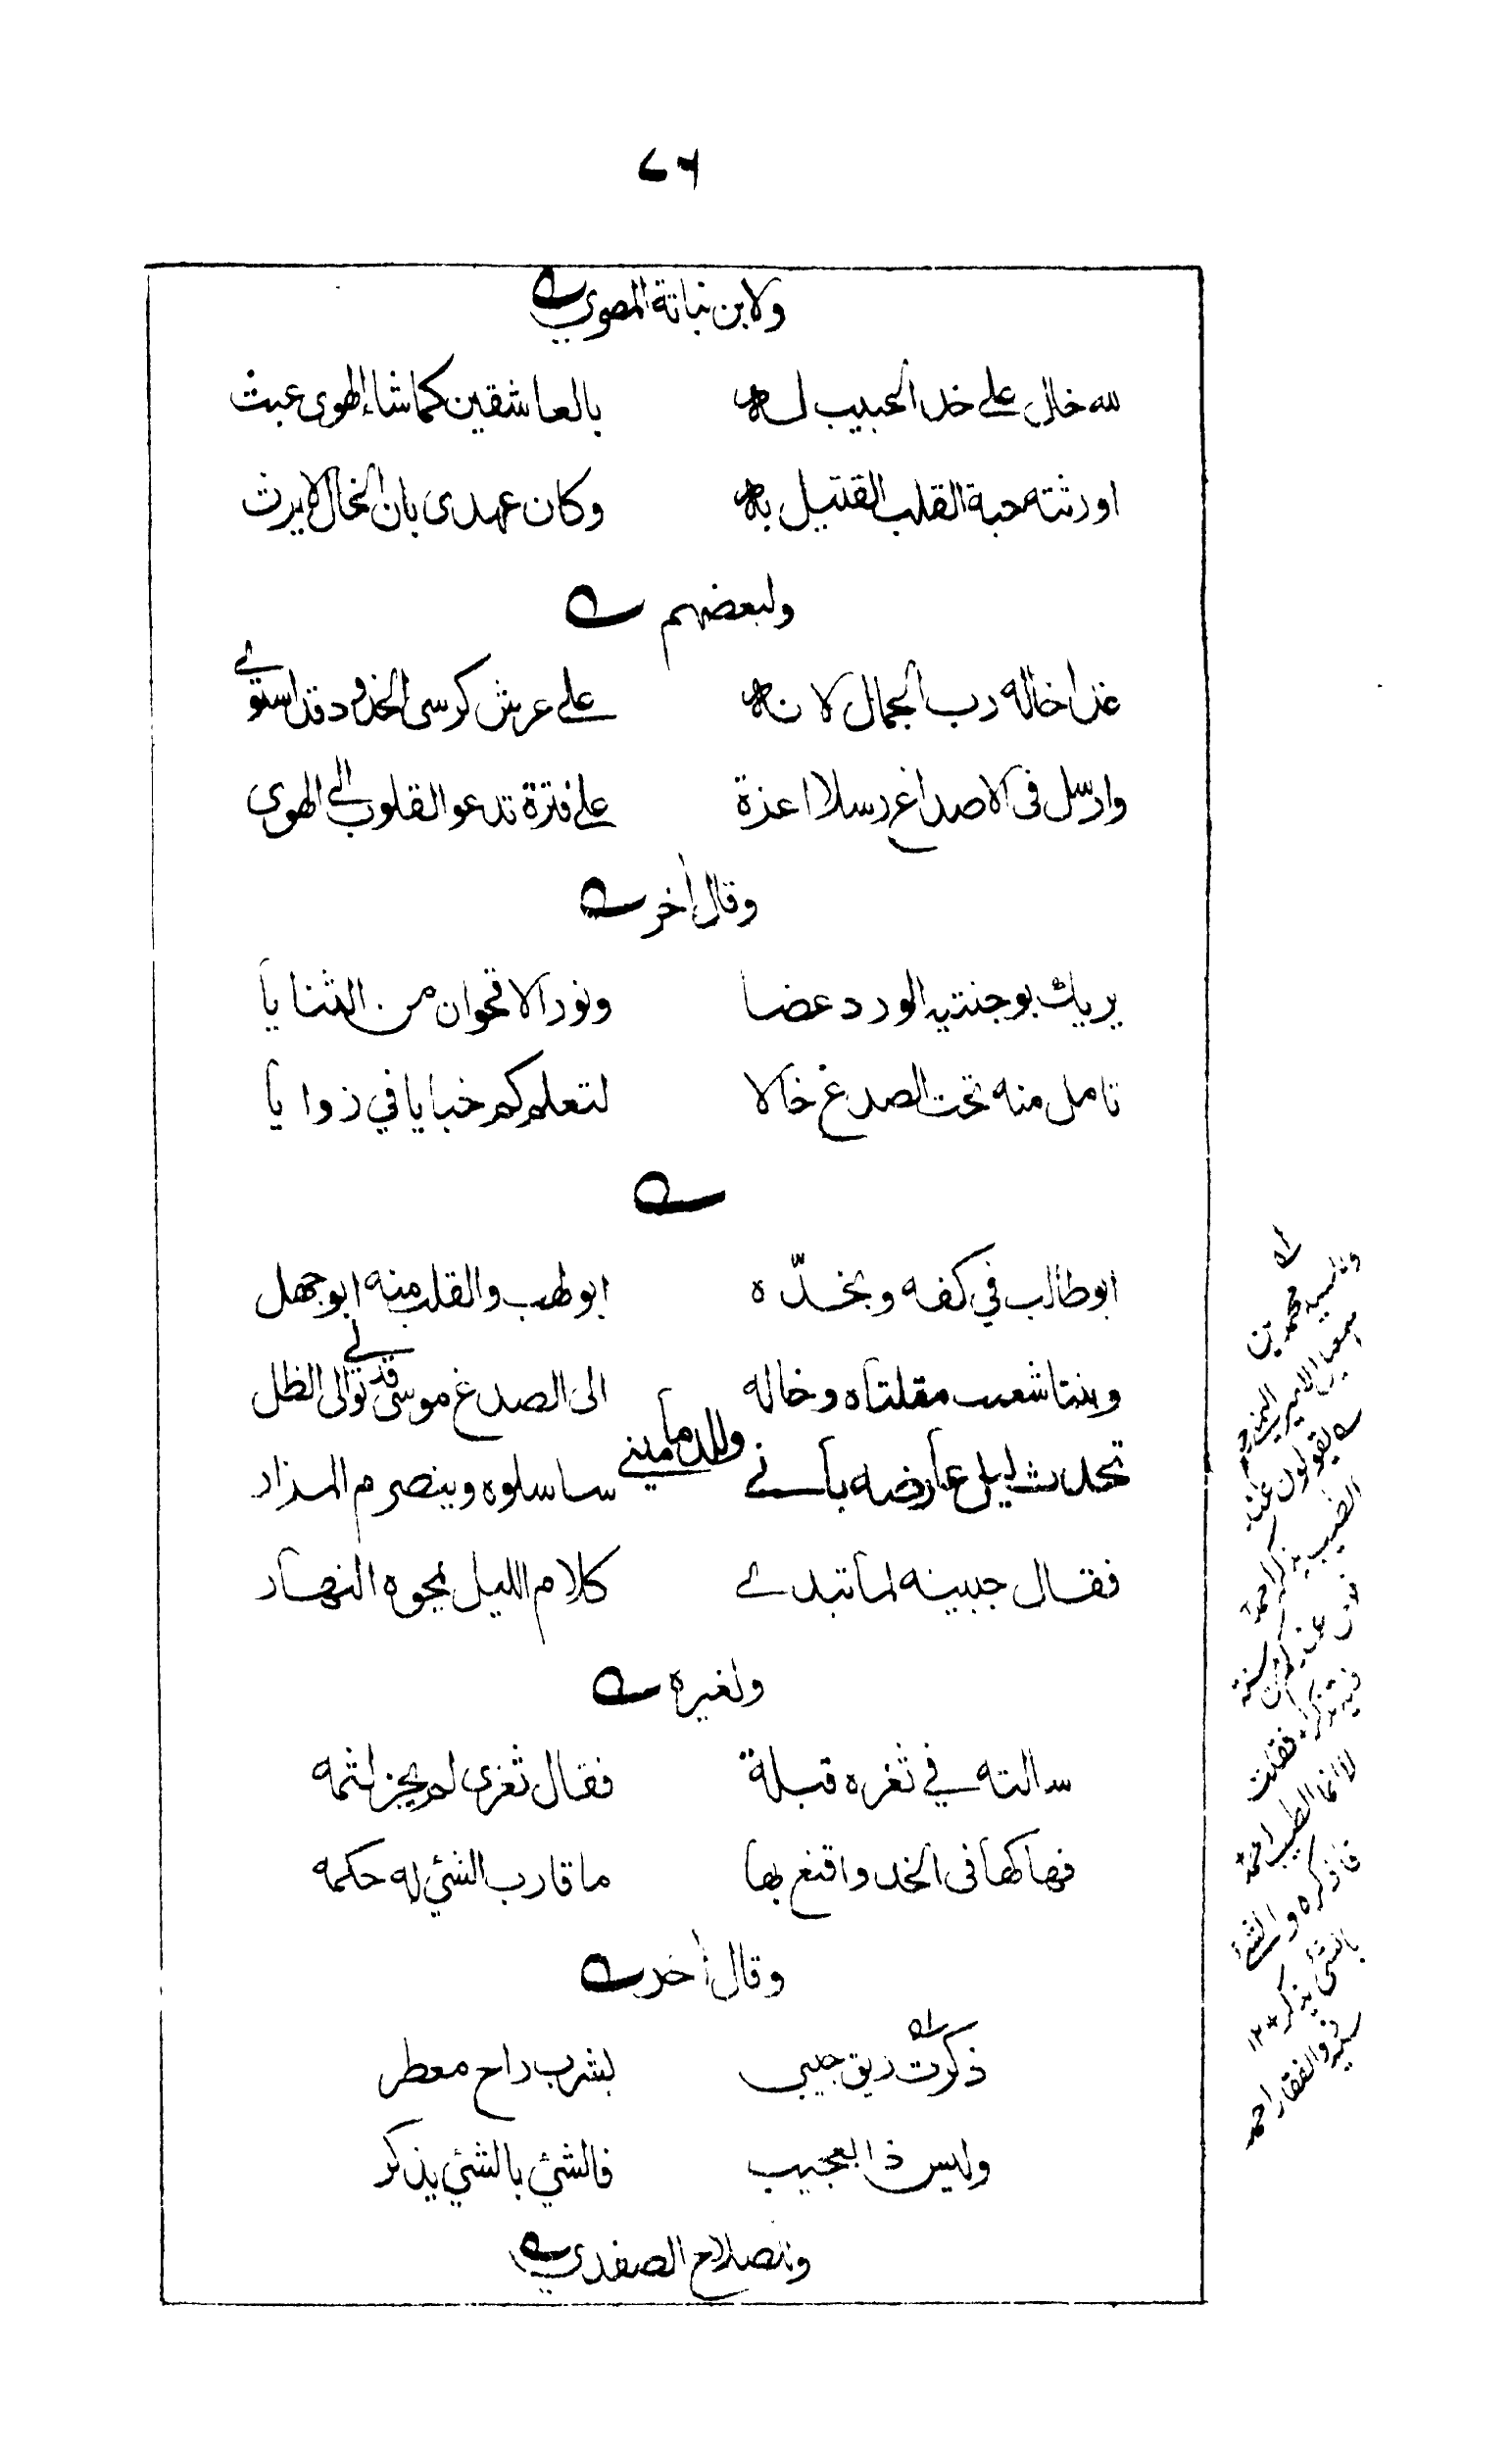 ٧٦
ولابن نباتة المصري
لله خال على خد الحبيب له بالعاشقين كما شاء الهوى عبث
اورثته حبة القلب القتيل به وكان عهدى بان الخال لا يرث
ولبعضهم
غدا خاله رب الجمال لانه على عرش كرسى الخدود قد استوى
وارسل فى الاصداغ رسلا اعزة على فترة تدعو القلوب الى الهوى
وقال اخر
يريك بوجنتيه الورد غضا ونور الاقحوان من الثنايا
تامل منه تحت الصدغ خالا لتعلم كم خبايا في زوايا
ابو طالب في كفه وبخدّه ابو لهب والقلب منه ابو جهل
وبنتا شعيب مقلتاه وخاله الى الصدغ موسى قد تولى الى الظل
وللدمامينى
تحدث ليل عارضه بانى ساسلوه وينصرم المزار
فقال جبينه لما تبدى كلام الليل يمحوه النهار
ولغيره
سالته في ثغره قبلة فقال ثغرى لم يجز لثمه
فهاكها فى الخد واقنع بها ما قارب الشئ له حكمه
وقال أخر
ذكرت ريق حبيبى بشرب راح معطر
وليس ذا بعجيب فالشئ بالشئ يذكر
وللصلاح الصفدي
وللسيد محمد بن
اسمعيل الامير اليمنى
يقولون عند
الطيب يذكر احمد
فهل عندكم سنة
فيه تذكر فقلت
لا انما الطيب احمد
فاذكره والشئ
بالشئ يذكر ١٢
سيد ذوالفقار احمد